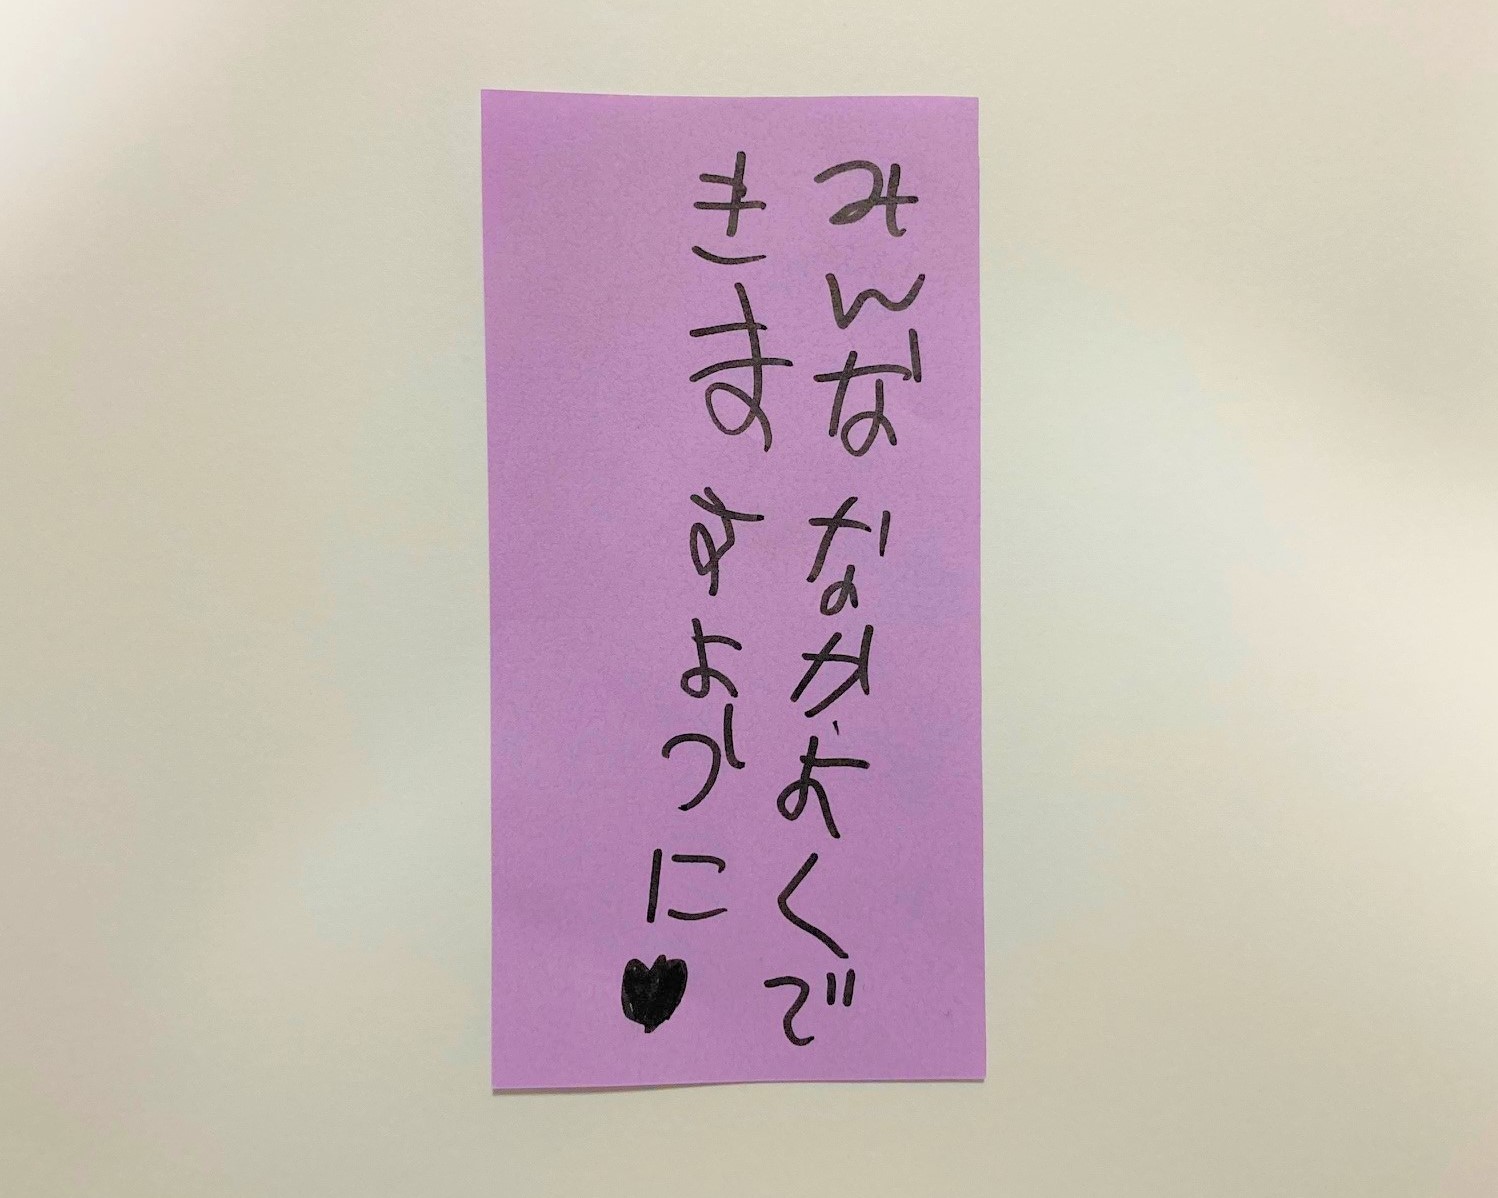 みんななかよくで
きますように♥